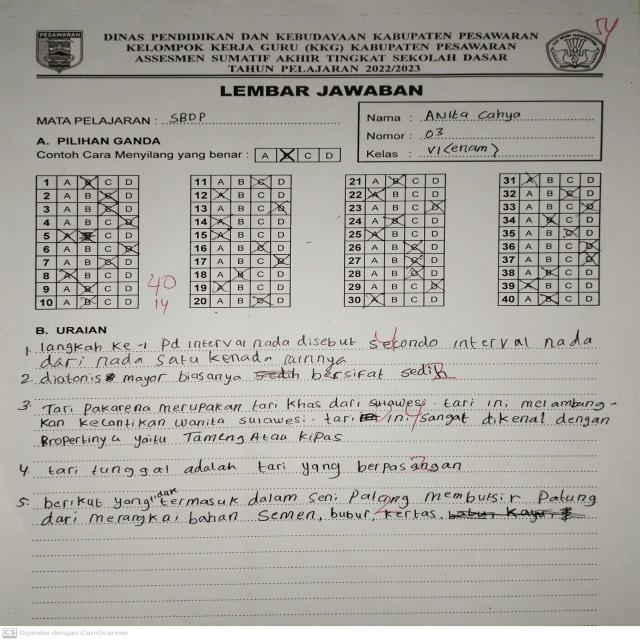 PESAWARAN
DINAS PENDIDIKAN DAN KEBUDAYAAN KABUPATEN PESAWARAN
KELOMPOK KERJA GURU (KKG) KABUPATEN PESAWARAN
ASSESMEN SUMATIF AKHIR TINGKAT SEKOLAH DASAR
TAHUN PELAJARAN 2022/2023
54
LEMBAR JAWABAN
MATA PELAJARAN : SBDP
Nama : ANita Cahya
Nomor : 03
Kelas : VI (enam)
A. PILIHAN GANDA
Contoh Cara Menyilang yang benar : A X C D
1 A B C D 11 A B C D 21 A B C D 31 A B C D
2 A B C D 12 A B C D 22 A B C D 32 A B C D
3 A B C D 13 A B C D 23 A B C D 33 A B C D
4 A B C D 14 A B C D 24 A B C D 34 A B C D
5 A B C D 15 A B C D 25 A B C D 35 A B C D
6 A B C D 16 A B C D 26 A B C D 36 A B C D
7 A B C D 17 A B C D 27 A B C D 37 A B C D
8 A B C D 18 A B C D 28 A B C D 38 A B C D
9 A B C D 19 A B C D 29 A B C D 39 A B C D
10 A B C D 20 A B C D 30 A B C D 40 A B C D
40
14
B. URAIAN
1. langkah ke-1 Pd interval nada disebut sekondo interval nada
dari nada satu kenada lainnya
2. diatonis mayor biasanya bersifat sedih
3. Tari Pakarena merupakan tari khas dari sulawesi. tari ini melambang-
kan kecantikan wanita sulawesi. tari ini sangat dikenal dengan
Propertinya yaitu Tameng Atau Kipas
4. tari tunggal adalah tari yang berpasangan
5. berikut yang tidak termasuk dalam Seni Patung membutsir Patung
dari merangkai bahan Semen, bubur, kertas.
CS Dipindai dengan CamScanner